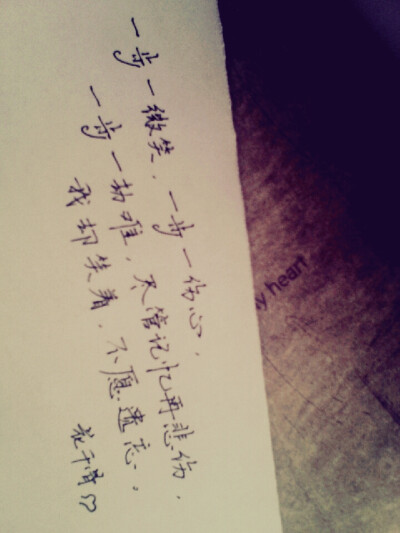 一步一微笑，一步一伤心，
一步一劫难，尽管记忆再悲伤，
我却笑着，不愿遗忘，
花千骨♡
y heart